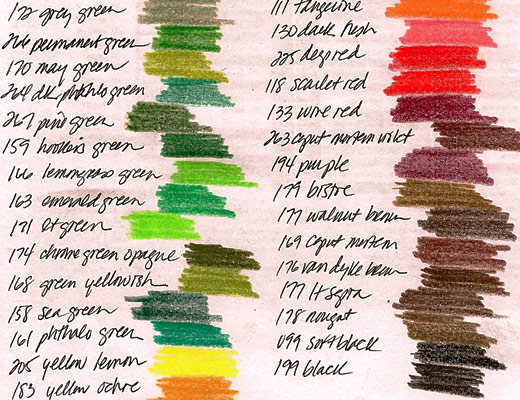 172 grey green
266 permanent green
170 may green
264 dk phthalo green
267 pine green
159 hooker's green
166 lemongrass green
163 emerald green
171 lt green
174 chrome green opaque
168 green yellowish
158 sea green
161 phthalo green
205 yellow lemon
183 yellow ochre
111 tangerine
130 dark flesh
225 deep red
118 scarlet red
133 wine red
263 caput mortem violet
194 purple
179 bistre
177 walnut brown
169 caput mortem
176 van dyke brown
177 lt sepia
178 nougat
099 soft black
199 black